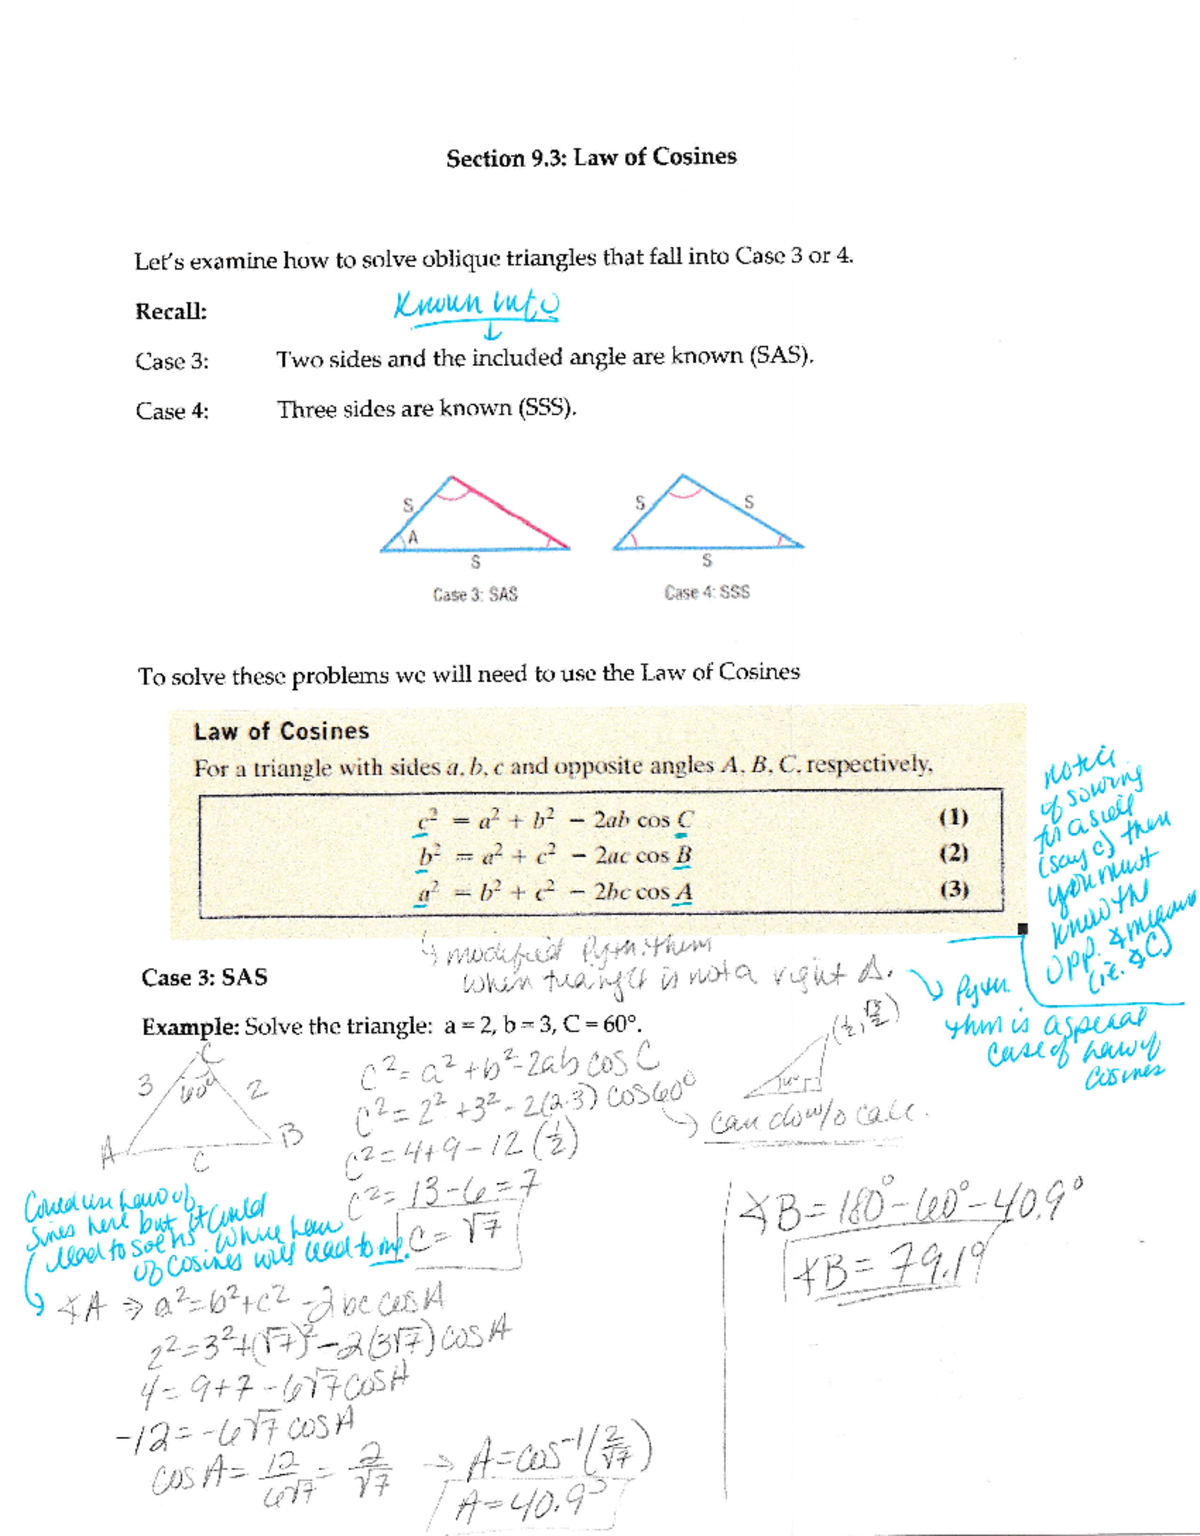 Section 9.3: Law of Cosines
Let's examine how to solve oblique triangles that fall into Case 3 or 4.
Known info
Recall:
Case 3: Two sides and the included angle are known (SAS).
Case 4: Three sides are known (SSS).
S
A
S
Case 3: SAS
S
S
S
Case 4: SSS
To solve these problems we will need to use the Law of Cosines
Law of Cosines
For a triangle with sides a, b, c and opposite angles A, B, C, respectively,
c² = a² + b² − 2ab cos C (1)
b² = a² + c² − 2ac cos B (2)
a² = b² + c² − 2bc cos A (3)
notice
if solving
for a side
(say c) then
you must
know the
opp. ∡ measure
(i.e. ∡C)
↳ modified Pyth. thm
when triangle is not a right Δ.
↘ Pythn.
thm is a special
case of Law of
Cosines
Case 3: SAS
Example: Solve the triangle: a = 2, b = 3, C = 60°.
C
3
60°
2
A
B
C
c² = a² + b² - 2ab cos C
c² = 2² + 3² - 2(2·3) cos 60°
c² = 4 + 9 - 12 (½)
c² = 13 - 6 = 7
C = √7
(½, √3/2)
can do w/o calc.
Could use Law of
Sines here but it could
lead to 2 sol'ns. Where Law
of Cosines will lead to only
∡A ⇒ a² = b² + c² - 2bc cos A
2² = 3² + (√7)² - 2(3√7) cos A
4 = 9 + 7 - 6√7 cos A
-12 = -6√7 cos A
cos A = 12/6√7 = 2/√7
→ A = cos⁻¹(2/√7)
A = 40.9°
∡B = 180° - 60° - 40.9°
∡B = 79.1°